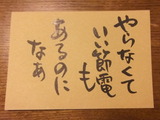 やらなくて
いい節電も
あるのに
なあ